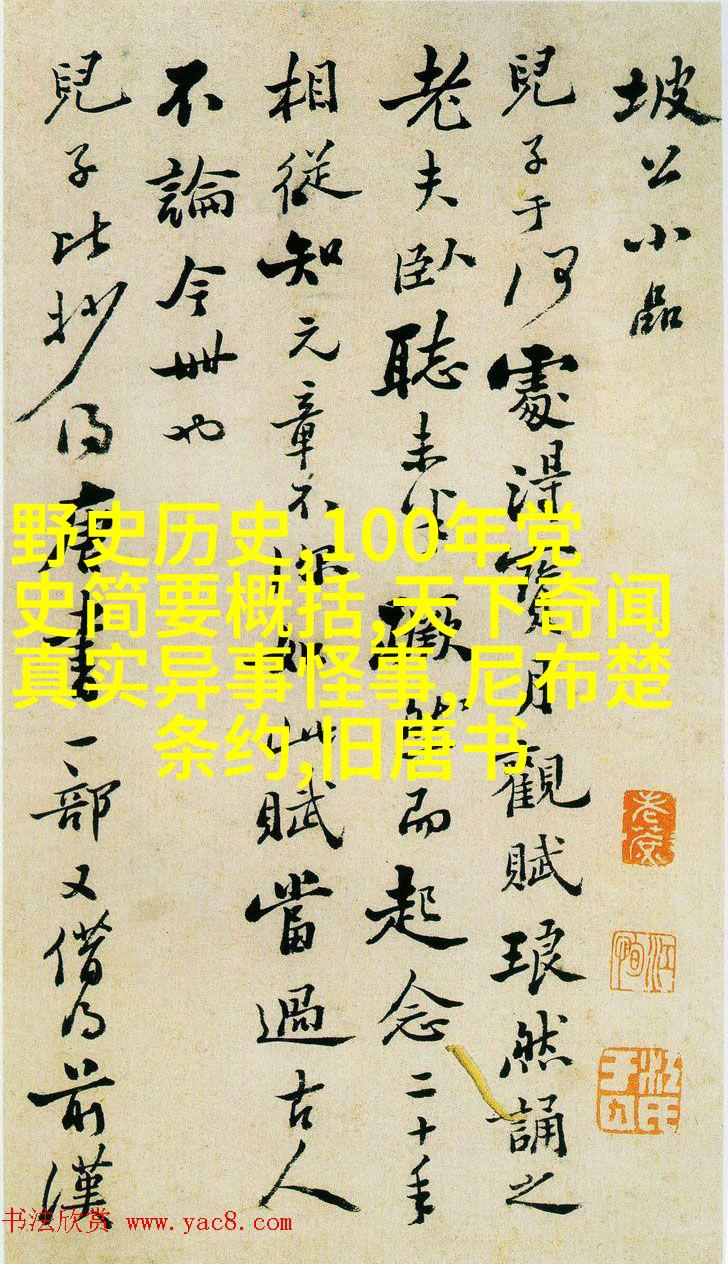 坡公小品
兒子于何處得寶月觀賦琅然誦之
老夫臥聽未半然而起念二十年
相從知元章不如此賦當過古人
不論今世也
兒子比抄得唐書一部又借得前漢
野史历史,100年党
史简要概括,天下奇闻
真实异事怪事,尼布楚
条约,旧唐书
书法欣赏 www.yac8.com